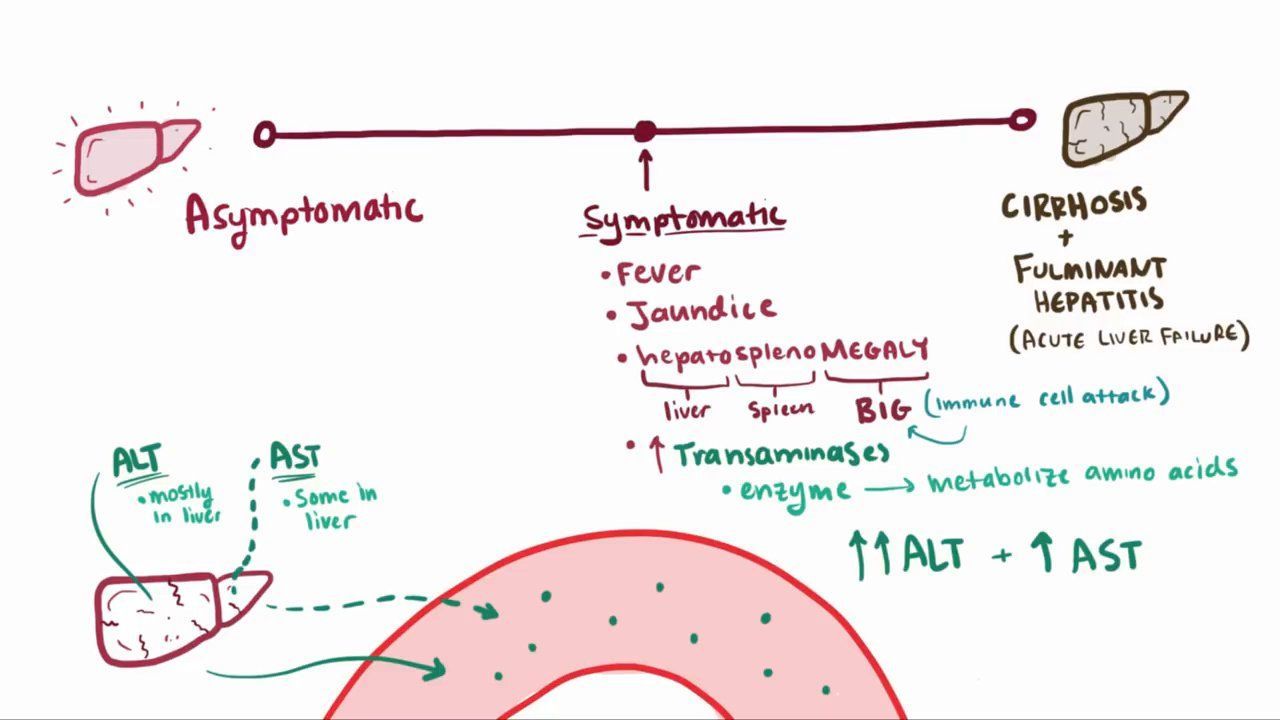 Asymptomatic
Symptomatic
• Fever
• Jaundice
• hepatospleno MEGALY
liver spleen BIG (immune cell attack)
• ↑ Transaminases
• enzyme → metabolize amino acids
↑↑ ALT + ↑ AST
CIRRHOSIS
+
FULMINANT
HEPATITIS
(ACUTE LIVER FAILURE)
ALT
• mostly
in liver
AST
• Some in
liver